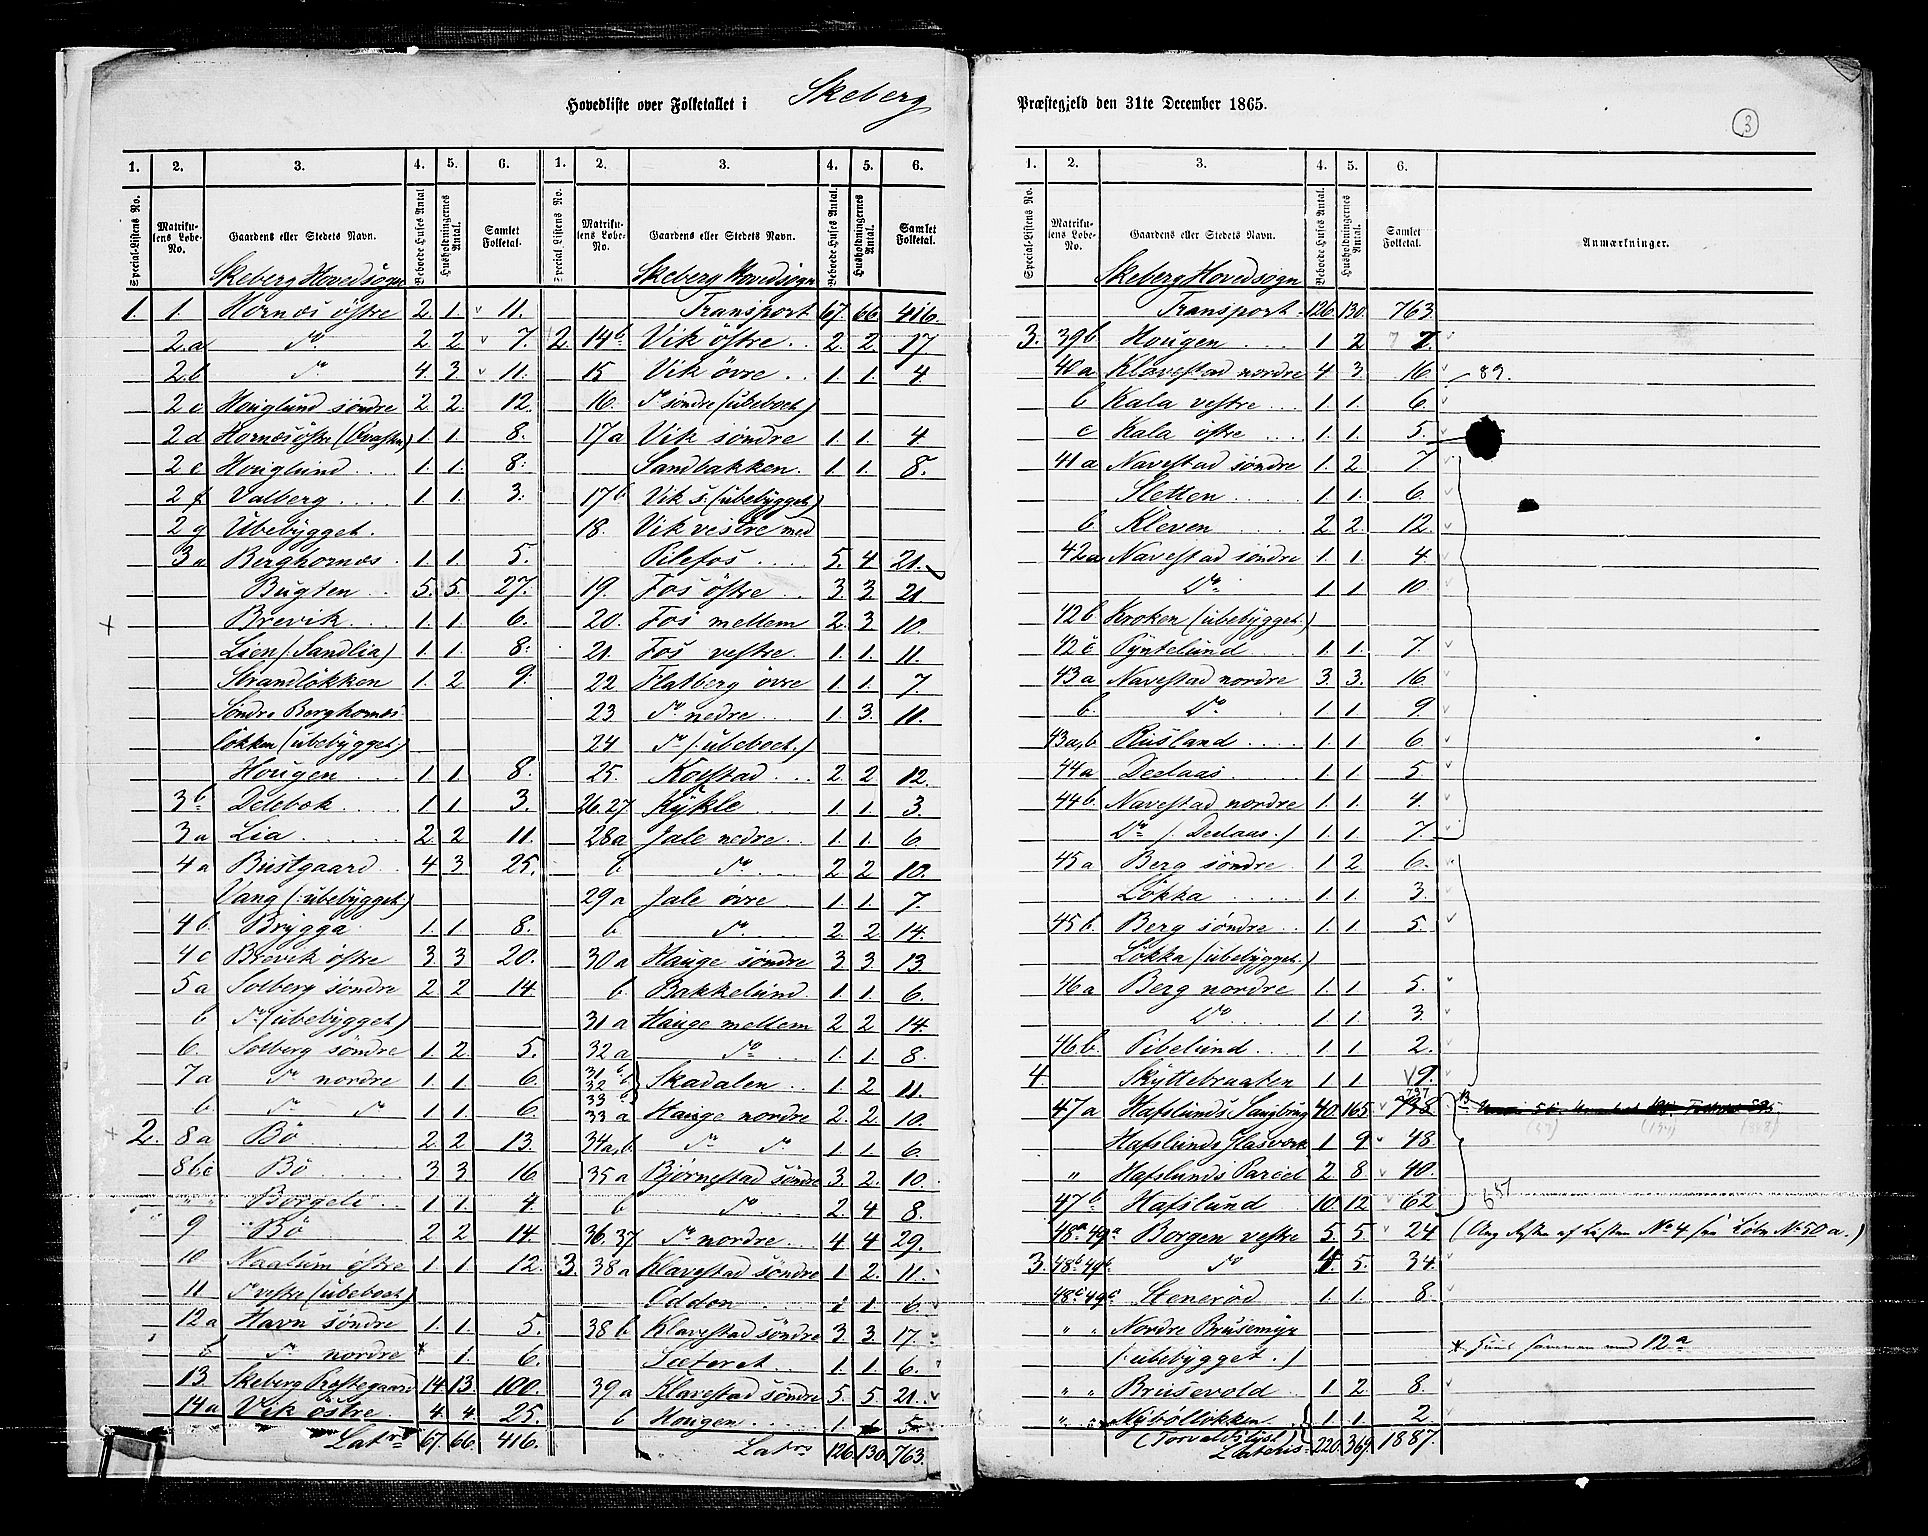 Hovedliste over Folketallet i Skeberg
Præstegjeld den 31te December 1865.
3
1. 2. 3. 4. 5. 6. 1. 2. 3. 4. 5. 6.
Special-Listens No. Matrikulens Løbe-No. Gaardens eller Stedets Navn. Beboede Huses Antal Husholdningernes Antal. Samlet Folketal. Special-Listens No. Matrikulens Løbe-No. Gaardens eller Stedets Navn. Beboede Huses Antal. Husholdningernes Antal. Samlet Folketal.
Skeberg Hovedsogn
1. 1 Hornæs östre 2. 1. 11.
2.a do 2. 2 7.
2.b do 4. 3 11.
2 c Houglund søndre 2. 2. 12.
2 d Hornæs östre 1. 1. 8.
2 e Houglund 1. 1. 8.
2 f Valberg 1. 1. 3.
2 g Ubebygget.
3 a Berghornæs 1. 1. 5.
Bugten 5. 5. 27.
Brevik 1. 1. 6.
Lien (Sandlia) 1. 1. 8.
Strandløkken 1. 2 9.
Søndre Berghornæs
løkken (ubebygget)
Hougen 1 1 8.
3 b Delebæk 1 1 3.
3 a Lia 2 2 11.
4 a Bustgaard 4 3 25.
Vang (: ubebygget :)
4 b. Brygga 1. 1 8.
4 c Brevik östre 3. 3 20.
5 a Solberg søndre 2 2 14
b do (ubebygget)
6. Solberg søndre 1. 2. 5.
7 a do nordre 1. 1 6.
b do do 1. 1. 6.
2. 8 a Bö 2. 2 13.
8 b c Bö 3 3 16
" " Borgeli 1. 1 4.
9 Bö 2 2 14
10 Naalum östre 1 1 12.
11 do vestre (ubeboet)
12 a Havn søndre 1. 1. 5.
b do nordre * 1. 6.
13. Skeberg Præstegaard 14 13. 100.
14 a Vik östre 4. 4. 25.
Latrs 67. 66. 416.
Skeberg Hovedsogn
Transport 67. 66 416.
2. 14 b Vik östre 2. 2. 17
15 Vik övre 1. 1. 4
16. do søndre (ubeboet)
17 a Vik søndre 1. 1. 4
Sandbakken. 1. 1. 8.
17 b Vik s. (ubebygget)
18. Vik vestre med
Pilefos 5. 4 21.
19. Fos östre 3. 3. 21
20. Fos mellem 2. 3 10.
21. Fos vestre 1. 1. 11.
22 Flatberg övre 1 1 7.
23 do nedre 1 3. 11.
24 do (: ubeboet :)
25. Korstad 2. 2 12.
26.27 Kykle 1. 1. 3.
28 a Jale nedre 1. 1. 6
b do 2 2 10.
29 a Jale övre 1. 1. 7.
b do 2. 2 14.
30 a Hauge søndre 3. 3. 13.
b. Bakkelund 1. 1. 6.
31 a Hauge mellem 2 2 14
32 a do 1. 1. 8.
31 b 32 b 33 b Skadalen 1. 2 11.
33 a Hauge nordre 2. 2. 10.
34 a, b do do 1 1 6.
35 a Bjørnestad søndre 3. 2. 10.
b do 2 4 8.
36.37 do nordre 4 4 29.
3. 38 a Klavestad søndre 1 2. 11.
Oddon 1 1. 6.
38 b Klavestad søndre 3 3. 17.
Sæteret 1. 1 6.
39 a Klavestad søndre 5. 5 21.
b Hougen 1. 1 5
Latrs 126. 130. 763.
1. 2. 3. 4. 5. 6.
Special-Listens No. Matrikulens Løbe-No. Gaardens eller Stedets Navn. Beboede Huses Antal. Husholdningernes Antal. Samlet Folketal. Anmærkninger.
Skeberg Hovedsogn
Transport 126. 130. 763.
3. 39 b Hougen 1 2 7.
40 a Klavestad nordre 4 3. 16 89.
b Kala vestre 1. 1. 6.
c Kala östre 1. 1. 5.
41 a Navestad søndre 1. 2 7
Sletten 1 1 6.
b Kleven 2 2 12.
42 a Navestad søndre 1. 1 4.
Do 1 1 10.
42 b Kroken (ubebygget.)
42 c Pyntelund 1. 1 7.
43 a Navestad nordre 3. 3. 16
b. Do 1 1 9.
43 a, b Rusland 1. 1 6
44 a Deelaas 1. 1. 5
44 b. Navestad nordre 1. 1. 4.
Do (: Deelaas. :) 1. 1. 7.
45 a Berg søndre 1. 2 6.
Løkka 1 1. 3.
45 b. Berg søndre 1. 1. 5.
Løkka (ubebygget.)
46 a Berg nordre 1. 1. 5.
Do 1 1. 3.
46 b. Pibelund 1. 1 2.
4. Skyttebraaten 1. 1 9.
47 a Hafslunds Saugbrug 40. 165 738 737
Hafslunds Glasværk 1 9 48
" Hafslunds Parcel 2 8 40.
47 b Hafslund 10. 12 62 657
48 a 49 a Borgen vestre 5. 5 24 No 4 No 50 a.)
3. 48 b 49 b. do 5. 34.
48 c 49 c Stenerød 1. 1. 8.
" " Nordre Brusemyr
(: ubebygget. :)
* Huus sammen med 12 a
" " Brusevold 1. 2 8.
" " Nybölløkken 1. 1. 2.
(Torvaldslyst)
Lateris 220. 369. 1887.